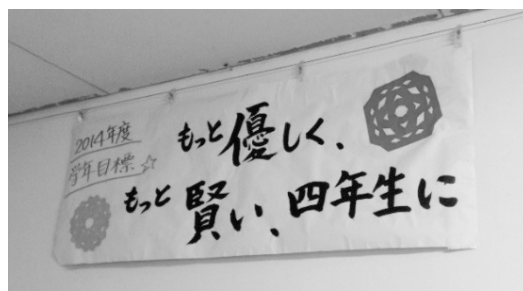 2014年度
学年目標☆
もっと優しく、
もっと賢い、四年生に